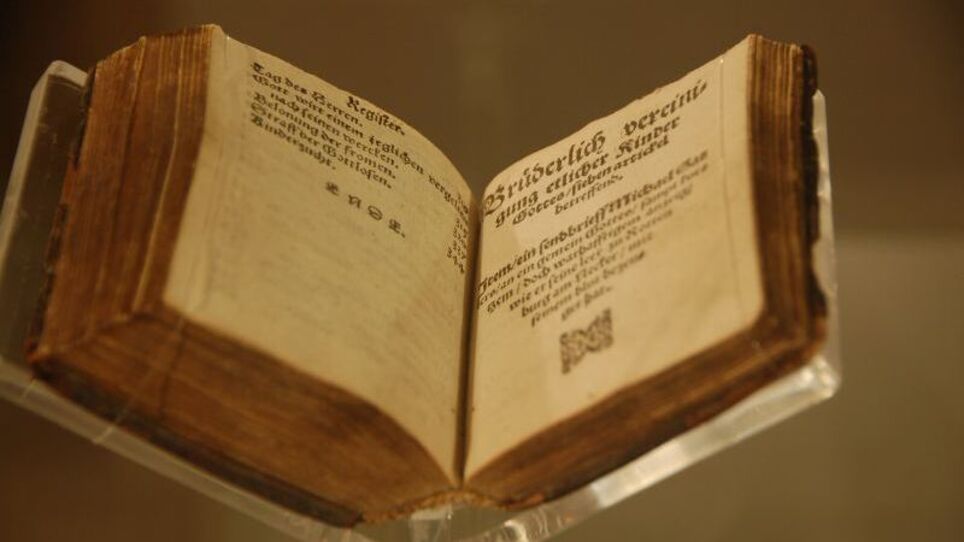 Register.
Tag des Herren.
Gott wirt einem jeglichen vergelten
nach seinen wercken.
Belonung der fromen.
Straff der Gottlosen.
Kinderzucht.
E N D E.
Brüderlich vereini-
gung etlicher Kinder
Gottes / siben artickel
betreffend.
Item / ein sendbrieff Michael Sat
lers / an ein gemein Gottes / sampt
doch warhafftigem anzeig /
wie er seine leer zu Rotten
burg am Necker / mit
seinem blut bezeu
get hat.